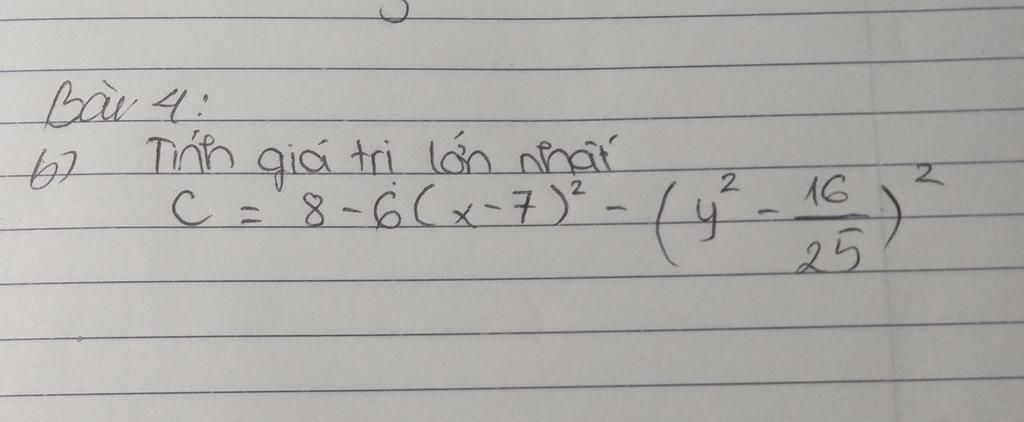 Bài 4:
b) Tính giá trị lớn nhất
C = 8 - 6(x-7)² - (y² - 16/25)²